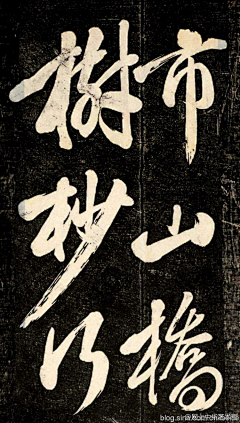 市山橋
樹杪行
blog.sina.com.cn